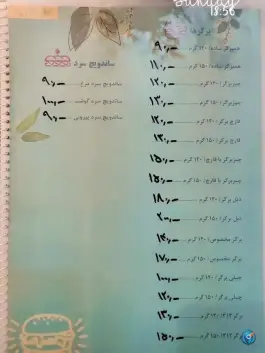 Sunday
18:56
برگرها
همبرگر ساده/ ۱۲۰ گرم ۹۰/-
همبرگر ساده/ ۱۵۰ گرم ۱۱۰/-
چیزبرگر/ ۱۲۰ گرم ۱۲۰/-
چیزبرگر/ ۱۵۰ گرم ۱۳۰/-
قارچ برگر/ ۱۲۰ گرم ۱۲۰/-
قارچ برگر/ ۱۵۰ گرم ۱۳۰/-
چیزبرگر با قارچ/ ۱۲۰ گرم ۱۵۰/-
چیزبرگر با قارچ/ ۱۵۰ گرم
دبل برگر/ ۱۲۰ گرم ۱۸۰/-
دبل برگر/ ۱۵۰ گرم ۲۰۰/-
برگر مخصوص/ ۱۲۰ گرم
برگر مخصوص/ ۱۵۰ گرم ۱۷۰/-
چیلی برگر/ ۱۲۰ گرم ۱۰۰/-
چیلی برگر/ ۱۵۰ گرم ۱۲۰/-
برگر ۱۳۱۳/ ۱۲۰ گرم ۱۳۰/-
برگر ۱۳۱۳/ ۱۵۰ گرم ۱۵۰/-
ساندویچ سرد
ساندویچ سرد مرغ ۹۰/-
ساندویچ سرد گوشت ۱۰۰/-
ساندویچ سرد پپرونی ۹۰/-